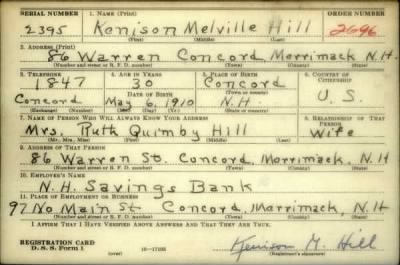 SERIAL NUMBER 1. NAME (Print) ORDER NUMBER
2395 Kenison Melville Hill 2696
(First) (Middle) (Last)
2. ADDRESS (Print)
86 Warren Concord Merrimack N.H.
(Number and street or R. F. D. number) (Town) (County) (State)
3. TELEPHONE 4. AGE IN YEARS 5. PLACE OF BIRTH 6. COUNTRY OF CITIZENSHIP
1847 30 Concord
DATE OF BIRTH (Town or county)
Concord May 6, 1910 N.H. U.S.
(Exchange) (Mo.) (Day) (Yr.) (State or country)
7. NAME OF PERSON WHO WILL ALWAYS KNOW YOUR ADDRESS 8. RELATIONSHIP OF THAT PERSON
Mrs. Ruth Quimby Hill Wife
(Mr., Mrs., Miss) (First) (Middle) (Last)
9. ADDRESS OF THAT PERSON
86 Warren St. Concord, Merrimack, N.H
(Number and street or R. F. D. number) (Town) (County) (State)
10. EMPLOYER'S NAME
N.H. Savings Bank
11. PLACE OF EMPLOYMENT OR BUSINESS
97 No Main St Concord, Merrimack, N.H
(Number and street or R. F. D. number) (Town) (County) (State)
I AFFIRM THAT I HAVE VERIFIED ABOVE ANSWERS AND THAT THEY ARE TRUE.
REGISTRATION CARD
D. S. S. Form 1 (over) Kenison M. Hill
(Registrant's signature)